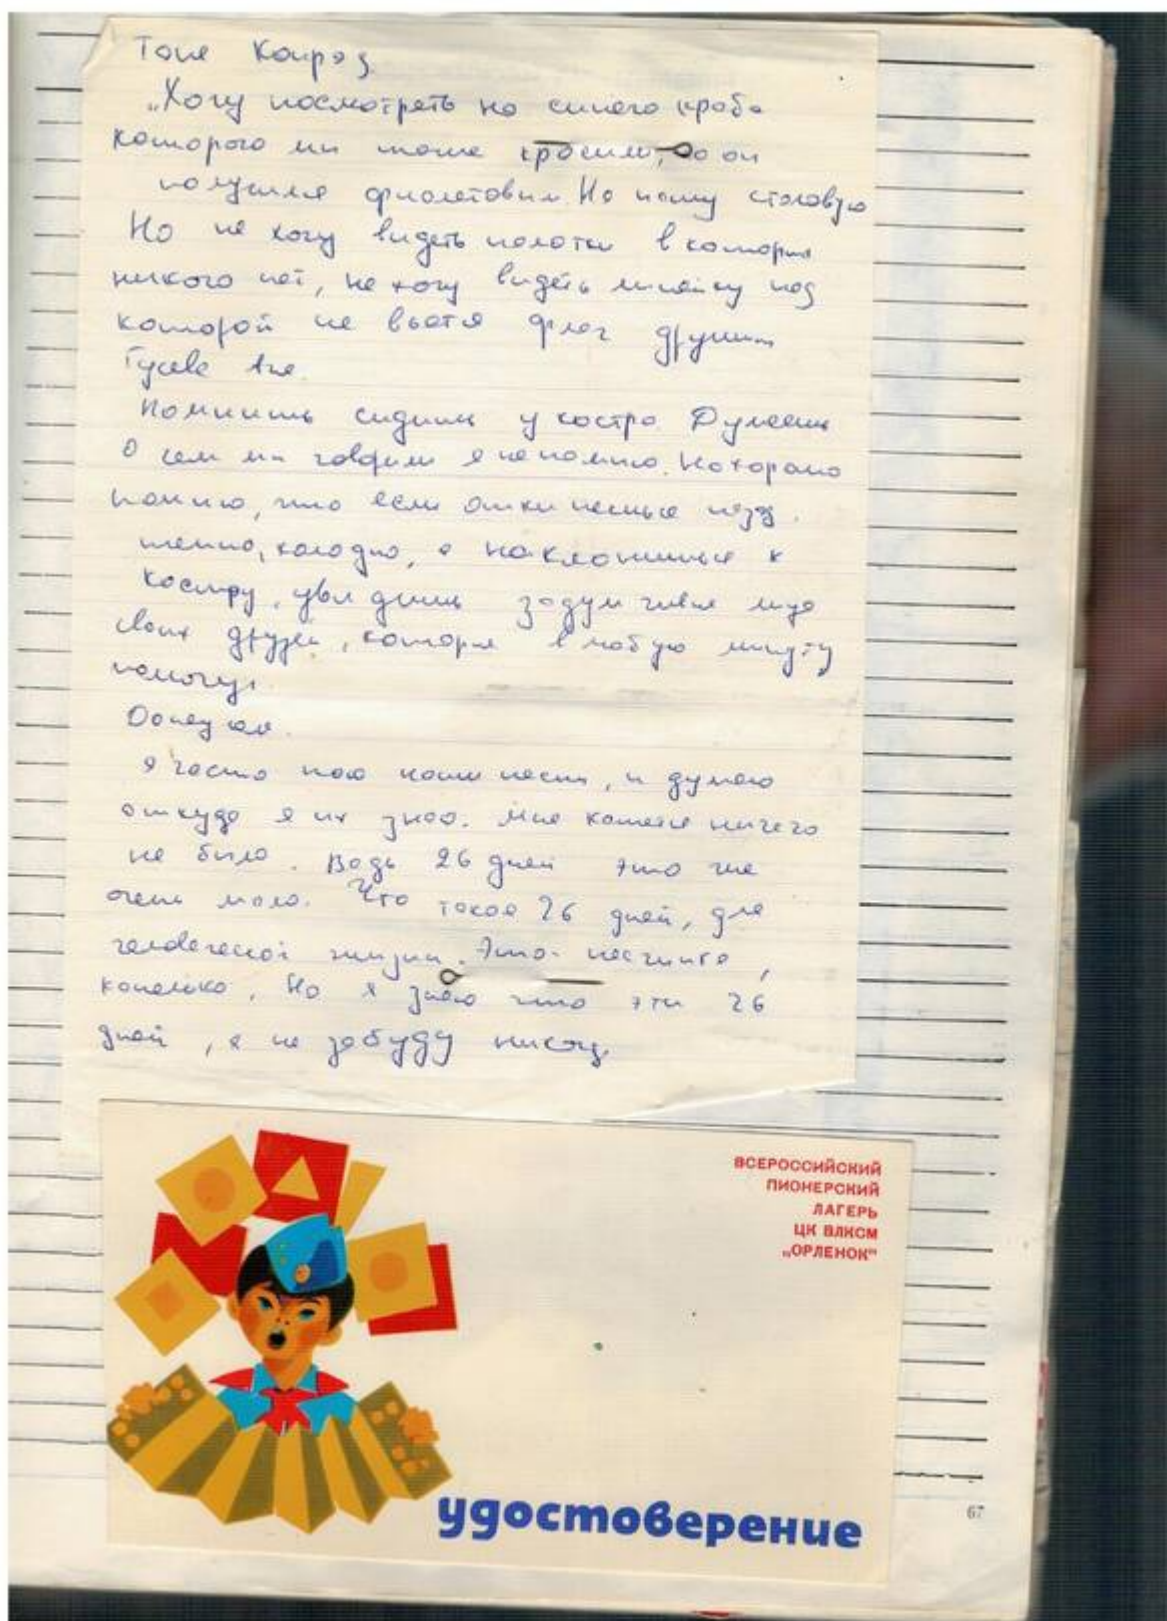 Таня
„Хочу посмотреть на синего краба
которого мы тоже красили, а он
получился фиолетовым На нашу столовую
Но не хочу видеть палатки в которых
никого нет, не хочу видеть линейку над
которой не вьется флаг дружины
Гусева
Помнишь сидишь у костра Думаешь
О чем мы говорили я не помню. Но хорошо
помню, что если откинешься назад
темно, холодно, а наклонишься к
костру, увидишь задумчивые лица
своих друзей, которые в любую минуту
помогут.
я часто пою наши песни, и думаю
откуда я их знаю. Мне кажется ничего
не было. Ведь 26 дней это же
очень мало. Что такое 26 дней, для
человеческой жизни. Это песчинка,
капелька. Но я знаю что эти 26
дней, я не забуду никогд
ВСЕРОССИЙСКИЙ
ПИОНЕРСКИЙ
ЛАГЕРЬ
ЦК ВЛКСМ
„ОРЛЕНОК"
удостоверение
67